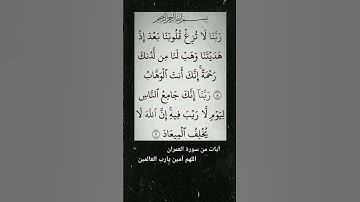 بسم الله الرحمن الرحيم
رَبَّنَا لَا تُزِغْ قُلُوبَنَا بَعْدَ إِذْ
هَدَيْتَنَا وَهَبْ لَنَا مِن لَّدُنكَ
رَحْمَةً ۚ إِنَّكَ أَنتَ ٱلْوَهَّابُ
٨ رَبَّنَآ إِنَّكَ جَامِعُ ٱلنَّاسِ
لِيَوْمٍ لَّا رَيْبَ فِيهِ ۚ إِنَّ ٱللَّهَ لَا
يُخْلِفُ ٱلْمِيعَادَ ٩
آيات من سورة العمران
اللهم أمين يارب العالمين